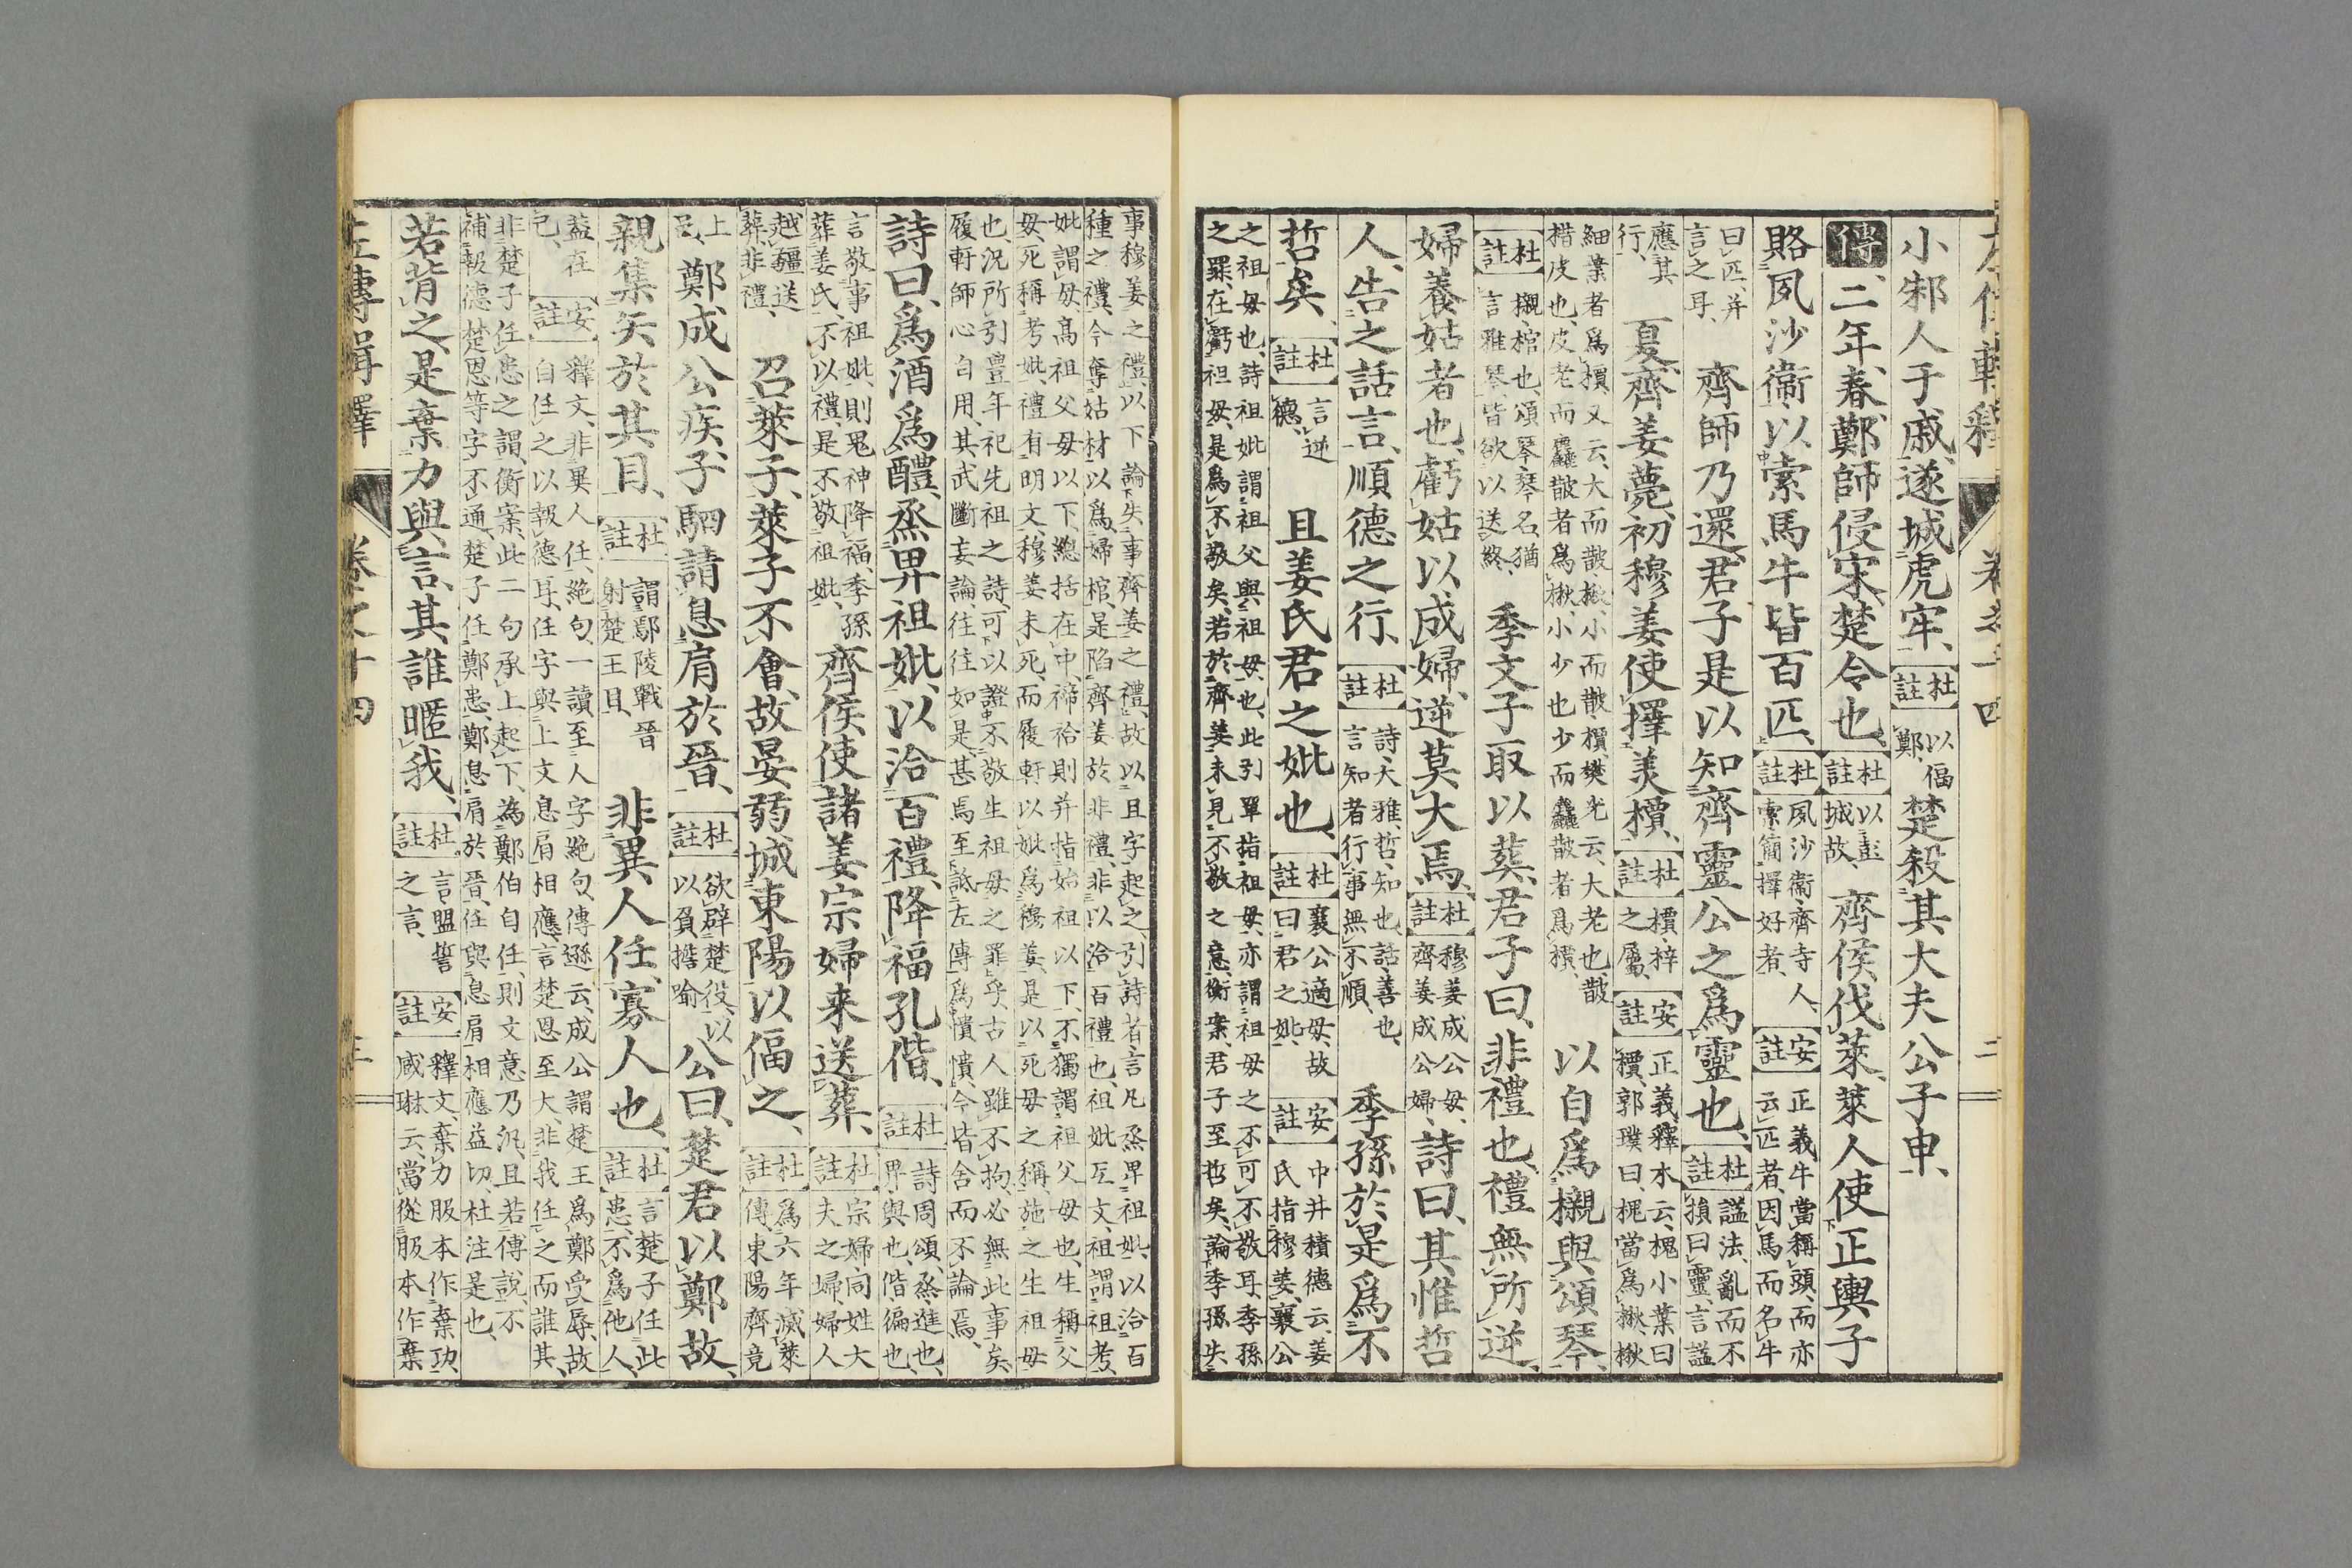 左傳輯釋 卷之十四 二
小邾人于戚、遂城虎牢、杜註以偪鄭、楚殺其大夫公子申、
傳、二年、春、鄭師侵宋、楚令也、杜註以彭城故、齊侯伐萊、萊人使正輿子
賂夙沙衞、以索馬牛皆百匹、杜註夙沙衞、齊寺人、索、簡擇好者、安註正義牛當稱頭、而亦云匹者、因馬而名牛
曰匹、并言之耳、齊師乃還、君子是以知齊靈公之爲靈也、杜註謚法、亂而不損曰靈、言謚
應其行、夏、齊姜薨、初穆姜使擇美檟、杜註檟、梓之屬、安註正義、釋木云、槐小葉曰檟、郭璞曰、槐當爲楸、楸
細葉者爲檟、又云、大而皵、楸、小而皵、檟、樊光云、大老也、皵
棤皮也、皮老而麤皵者爲楸、小少也、少而麤皵者爲檟、以自爲櫬與頌琴、
杜註櫬、棺也、頌琴、琴名、猶言雅琴、皆欲以送終、季文子取以葬、君子曰、非禮也、禮無所逆、
婦養姑者也、虧姑以成婦、逆莫大焉、杜註穆姜成公母、齊姜成公婦、詩曰、其惟哲
人、告之話言、順德之行、杜註詩、大雅、哲、知也、話、善也、言知者行事無不順、季孫於是爲不
哲矣、杜註言逆德、且姜氏君之妣也、杜註襄公適母、故曰君之妣、安註中井積德云、姜氏指穆姜、襄公
之祖母也、詩祖妣謂祖父與祖母也、此引單指祖母、亦謂祖母之不可不敬耳、季孫
之罪、在虧祖母、是爲不敬矣、若於齊姜未見不敬之意、衡案、君子至哲矣、論季孫失
事穆姜之禮、以下論失事齊姜之禮、故以且字起之、引詩者言凡烝畀祖妣、以洽百
種之禮、今奪姑材以爲婦棺、是陷齊姜於非禮、非以洽百禮也、祖妣互文、祖謂祖考、
妣謂母、高祖父母以下、總括在中、禘祫則并指始祖以下、不獨謂祖父母也、生稱父
母、死稱考妣、禮有明文、穆姜未死、而履軒以妣爲穆姜、是以死母之稱、施之生祖母
也、況所引豐年祀先祖之詩、可以證不敬生祖母之罪乎、古人雖不拘、必無此事矣、
履軒師心自用、其武斷妄論、往往如是、甚焉至詆左傳爲憒憒、今皆舍而不論焉、
詩曰、爲酒爲醴、烝畀祖妣、以洽百禮、降福孔偕、杜註詩周頌、烝進也、畀、與也、偕徧也、
言敬事祖妣、則鬼神降福、季孫葬姜氏、不以禮、是不敬祖妣、齊侯使諸姜宗婦來送葬、杜註宗婦、同姓大夫之婦、婦人
越疆送葬、非禮、召萊子、萊子不會、故晏弱城東陽以偪之、杜註爲六年滅萊傳、東陽齊竟
上邑、鄭成公疾、子駟請息肩於晉、杜註欲辟楚役、以以負擔喻、公曰、楚君以鄭故、
親集矢於其目、杜註謂鄢陵戰、晉射楚王目、非異人任、寡人也、杜註言楚子任此患、不爲他人、
蓋在己、安註釋文、非異人任、絶句、一讀至人字絶句、傳遜云、成公謂楚王爲鄭受辱、故
自任之以報德耳、任字與上文息肩相應、言楚恩至大、非我任之而誰其、
非楚子任患之謂、衡案、此二句承上起下、爲鄭伯自任、則文意乃汎、且若傳說、不
補報德楚恩等字不通、楚子任鄭患、鄭息肩於晉、任與息肩相應益切、杜注是也、
若背之、是棄力與言、其誰暱我、杜註言盟誓之言、安註釋文、棄力服本作棄功、臧琳云、當從服本作棄
左傳輯釋 卷之十四 三